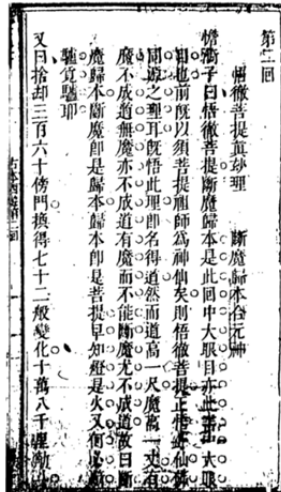 第二回
悟徹菩提真妙理　斷魔歸本合元神
憺漪子曰悟徹菩提斷魔歸本是此回中大眼目亦此書中大眼
目也前旣以須菩提祖師爲神仙矣則悟徹菩提正悟此仙佛
同源之理耳旣悟此理即名得道然而道高一尺魔高一丈有
魔不成道無魔亦不成道有魔而不能斷魔尤不成道故曰斷
魔歸本斷魔即是歸本歸本即是菩提早知燈是火又何必
騎驢覓驢耶
又曰拾却三百六十傍門換得七十二般變化十萬八千里